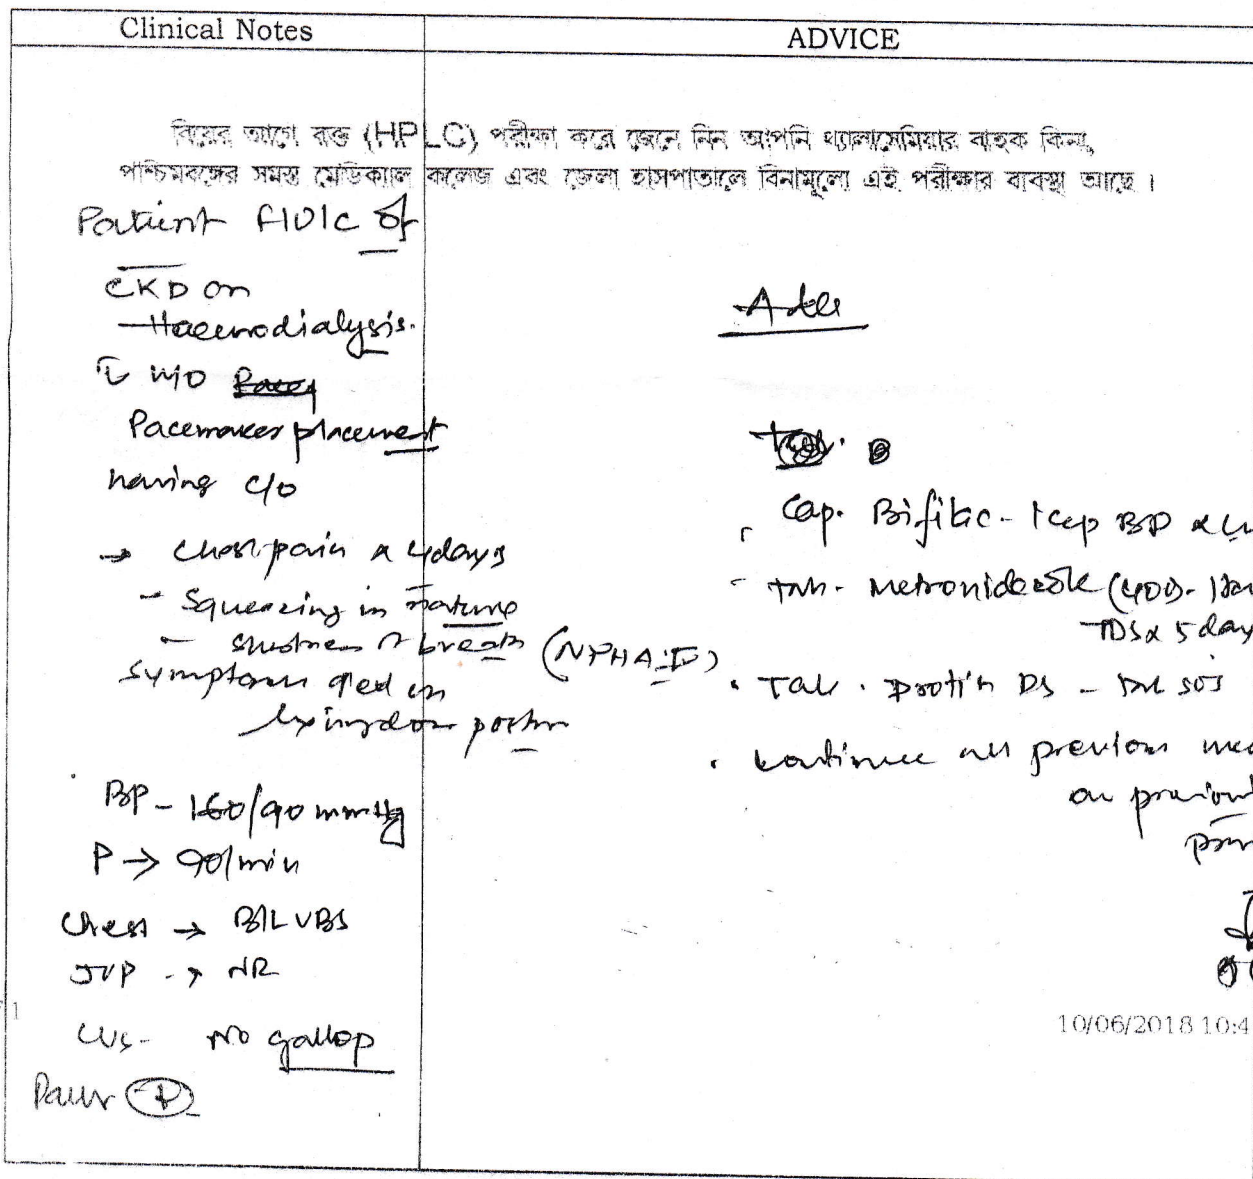 Clinical Notes
ADVICE
বিয়ের আগে রক্ত (HPLC) পরীক্ষা করে জেনে নিন আপনি থ্যালাসেমিয়ার বাহক কিনা,
পশ্চিমবঙ্গের সমস্ত মেডিক্যাল কলেজ এবং জেলা হাসপাতালে বিনামূল্যে এই পরীক্ষার ব্যবস্থা আছে।
Patient of
CKD on
Haemodialysis.
Pacemaker placement
having c/o
→ Chest pain x 4days
- Squeezing in nature
- shortness of breath
symptoms in
BP - 160/90 mmHg
P → 90/min
Chest → B/L VBS
JVP → NR
CVS - No gallop
Adv
Cap. Bifilac - 1cap BD x
- Tab. Metronidazole (400) - 1
TDS x 5 day
Tab. DS - sos
continue all previous
on
10/06/2018 10:4